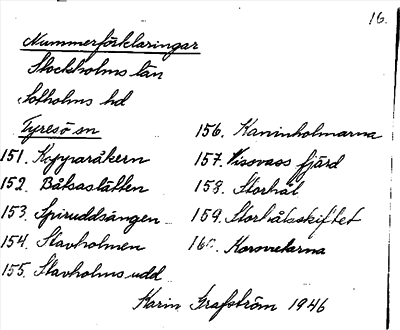 16.
Nummerförklaringar
Stockholms län
Sotholms hd
Tyresö sn
151. Kopparåkern
152. Båtsaslätten
153. Spiruddsängen
154. Stavholmen
155. Stavholms udd
156. Kaninholmarna
157. Vissvass fjärd
158. Storhål
159. Storhålsskiftet
160. Korsvretarna
Karin Grafström 1946